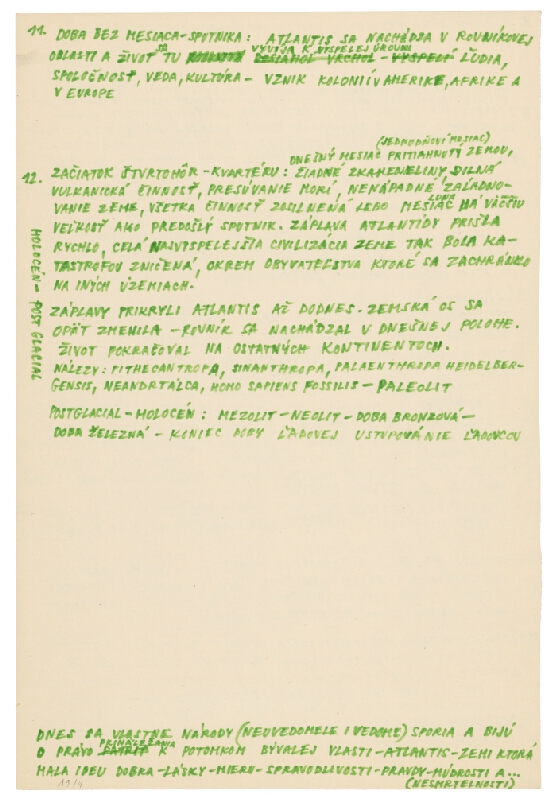 11. DOBA BEZ MESIACA-SPUTNIKA: ATLANTIS SA NACHÁDZA V ROVNÍKOVEJ
OBLASTI A ŽIVOT SA TU VYVÍJA K VYSPELEJ ÚROVNI DOSIAHOL VRCHOL - VYSPELÍ ĽUDIA,
SPOLOČNOSŤ, VEDA, KULTÚRA - VZNIK KOLONIÍ V AMERIKE, AFRIKE A
V EUROPE
(JEDNODŇOVÍ MESIAC)
DNEŠNÝ MESIAC PRITIAHNUTÝ ZEMOU,
12. ZAČIATOK ŠTVRTOHÔR-KVARTÉRU: ŽIADNÉ ZKAMENELINY, SILNÁ
VULKANICKÁ ČINNOSŤ, PRESÚVANIE MORÍ, NENÁPADNÉ ZAĽADNO-
VANIE ZEME, VŠETKA ČINNOSŤ ZOSILNENÁ LEBO MESIAC LUNA MÁ VÄČŠIU
VEĽKOSŤ AKO PREDOŠLÝ SPUTNIK. ZÁPLAVA ATLANTÍDY PRIŠLA
RÝCHLO, CELÁ NAJVYSPELEJŠIA CIVILIZÁCIA ZEME TAK BOLA KA-
TASTROFOU ZNIČENÁ, OKREM OBYVATEĽSTVA KTORÉ SA ZACHRÁNILO
NA INÝCH ÚZEMIACH.
HOLOCÉN - POST GLACIAL
ZÁPLAVY PRIKRYLI ATLANTIS AŽ DODNES. ZEMSKÁ OS SA
OPÄŤ ZMENILA - ROVNÍK SA NACHÁDZAL V DNEŠNEJ POLOHE.
ŽIVOT POKRAČOVAL NA OSTATNÝCH KONTINENTOCH.
NÁLEZY: PITHECANTROPA, SINANTHROPA, PALAENTHROPA HEIDELBER-
GENSIS, NEANDRTÁLCA, HOMO SAPIENS FOSSILIS - PALEOLIT
POSTGLACIAL - HOLOCÉN: MEZOLIT - NEOLIT - DOBA BRONZOVÁ -
DOBA ŽELEZNÁ - KONIEC DOBY ĽADOVEJ USTUPOVÁNIE ĽADOVCOV
DNES SA VLASTNE NÁRODY (NEUVEDOMELE I VEDOME) SPORIA A BIJÚ
O PRÁVO PATRIŤ PRINÁLEŽANIA K POTOMKOM BÝVALEJ VLASTI - ATLANTIS - ZEMI KTORÁ
MALA IDEU DOBRA - LÁSKY - MIERU - SPRAVODLIVOSTI - PRAVDY - MÚDROSTI A...
(NESMRTELNOSTI)